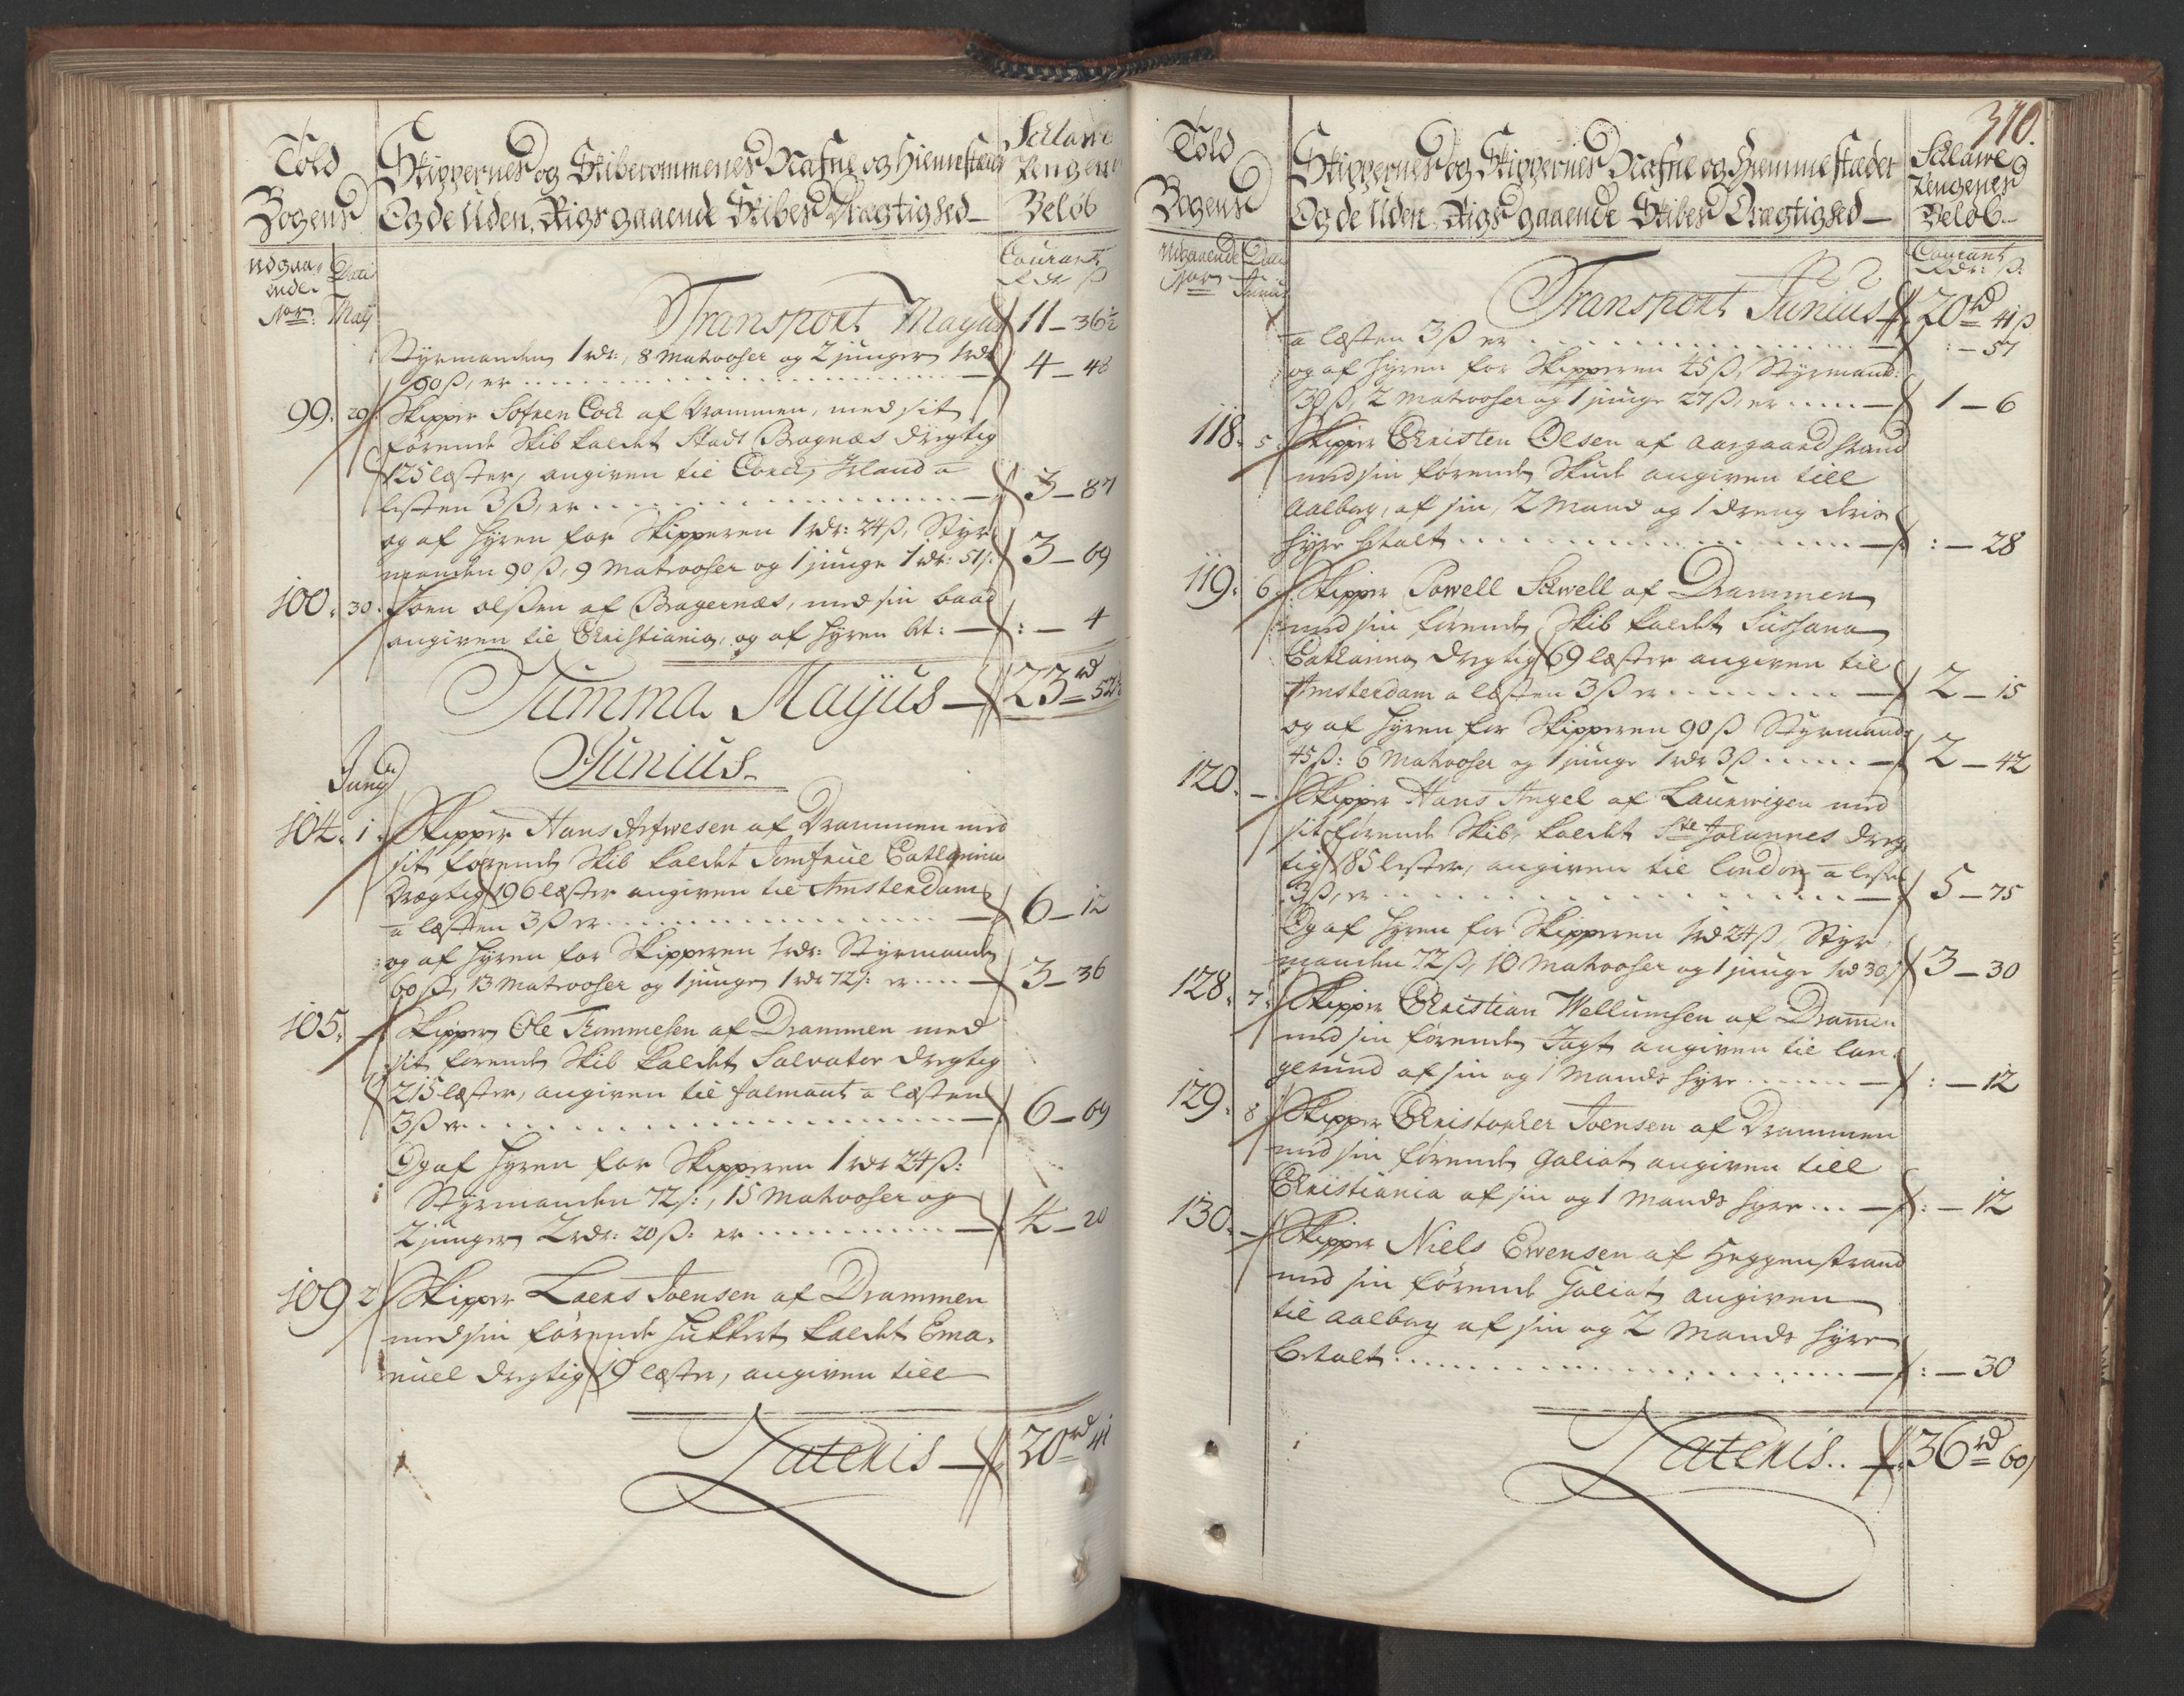 Told
Bogens
Skippernes og Skiberommenes Nafne og Hiemstæder
Og de Uden Rigs gaaende Skibes Drægtighed
Sclave
Pengenes
Beløb
udgaa-
ende
Nor:
Dati
Maij
Courant
Rdr ß
Transport Mayus 11 - 36½
Styrmanden 1 rdr:, 8 Matrooser og 2 junger 1 rdr
90 ß, er 4 - 48
99. 29. Skipper Sofren Cock af Drammen, med sit
førende Skib kaldet Stadt Bragnæs dregtig
125 læster, angiven til Corck i Irland a
lesten 3 ß, er 3 - 87
og af hyren for Skipperen 1 rdr: 24 ß, Styr-
manden 90 ß, 9 Matrooser og 1 junge 1 rdr: 51 ß: 3 - 69
100. 30. Joen Olssen af Bragernæs, med sin baad
angiven til Christiania, og af hyren bt: : - 4
Summa Mayus 23 rd 52½
Junius
Junij
104. 1. Skipper Hans Arfwesen af Drammen med
sit førende Skib kaldet Jomfrue Catharina
drægtig 196 læster angiven til Amsterdam
a læsten 3 ß er 6 - 12
og af hyren for Skipperen 1 rdr: Styrmanden
60 ß, 13 Matrooser og 1 junge 1 rdr 72 ß: er 3 - 36
105. - Skipper Ole Tommesen af Drammen med
sit førende Skib kaldet Salvator dregtig
215 læster, angiven til Falmaut a læsten
3 ß er 6 - 69
Og af hyren for Skipperen 1 rdr 24 ß:
Styrmanden 72 ß:, 15 Matrooser og
2 junger 2 rdr: 20 ß: er 4 - 20
109 2 Skipper Laers Joensen af Drammen
med sin førende Hukkert kaldet Ema-
nuel dregtig 19 læster, angiven till
Lateris 20 rd 41
370.
Told
Bogens
Skippernes og Skippernes Nafne og Hiemmestæder
Og de Uden Rigs gaaende Skibes Drægtighed
Sclave
Pengenes
Beløb
udgaaende
Nor
Dati
Junius
Courant
Rdr: ß:
Transport Junius 20 rd 41 ß
a læsten 3 ß er : - 57
og af hyren for Skipperen 45 ß, Styrmand:
30 ß, 2 Matrooser og 1 junge 27 ß, er 1 - 6
118. 5. Skipper Christen Olsen af Aasgaardstrand
med sin førende Skude angiven till
Aalborg, af sin, 2 Mand og 1 dreng deris
hyre betalt : - 28
119. 6. Skipper Powell Schwell af Drammen
med sin førende Skib kaldet Sussana
Catharina dregtig 69 læster angiven til
Amsterdam a læsten 3 ß er 2 - 15
og af hyren for Skipperen 90 ß Styrmand:
45 ß: 6 Matrooser og 1 junge 1 rdr 3 ß 2 - 42
120. - Skipper Hans Angel af Laurwigen med
sit førende Skib, kaldet Ste Johannes dreg-
tig 185 lester, angiven til London a leste
3 ß, er 5 - 75
Og af hyren for Skipperen 1 rd 24 ß, Styr-
manden 72 ß, 10 Matrooser og 1 junge 1 rd 30 ß 3 - 30
128. 7. Skipper Christian Wellumsen af Drammen
med sin førende Jagt angiven til Lan-
gesund af sin og 1 Mands hyre : - 12
129. 8 Skipper Christopher Joensen af Drammen
med sin førende Galiot angiven till
Christiania af sin og 1 Mands hyre : - 12
130. - Skipper Niels Ewensen af Heggenstrand
med sin førende Galiot angiven
til Aalborg af sin og 2 Mands hyre
betalt : - 30
Lateris 36 rd 60 ß